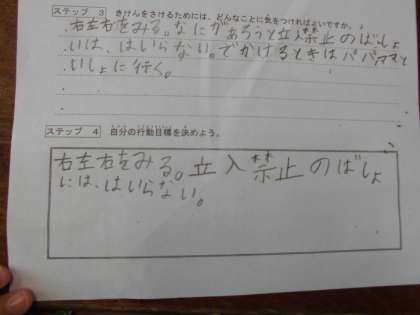 ステップ 3 きけんをさけるためには、どんなことに気をつければよいですか。
右左右をみる。なにがあろうと立入禁止のばしょ
いは、はいらない。でかけるときはパパママと
いしょに行く。
ステップ 4 自分の行動目標を決めよう。
右左右をみる。立入禁止のばしょ
には、はいらない。